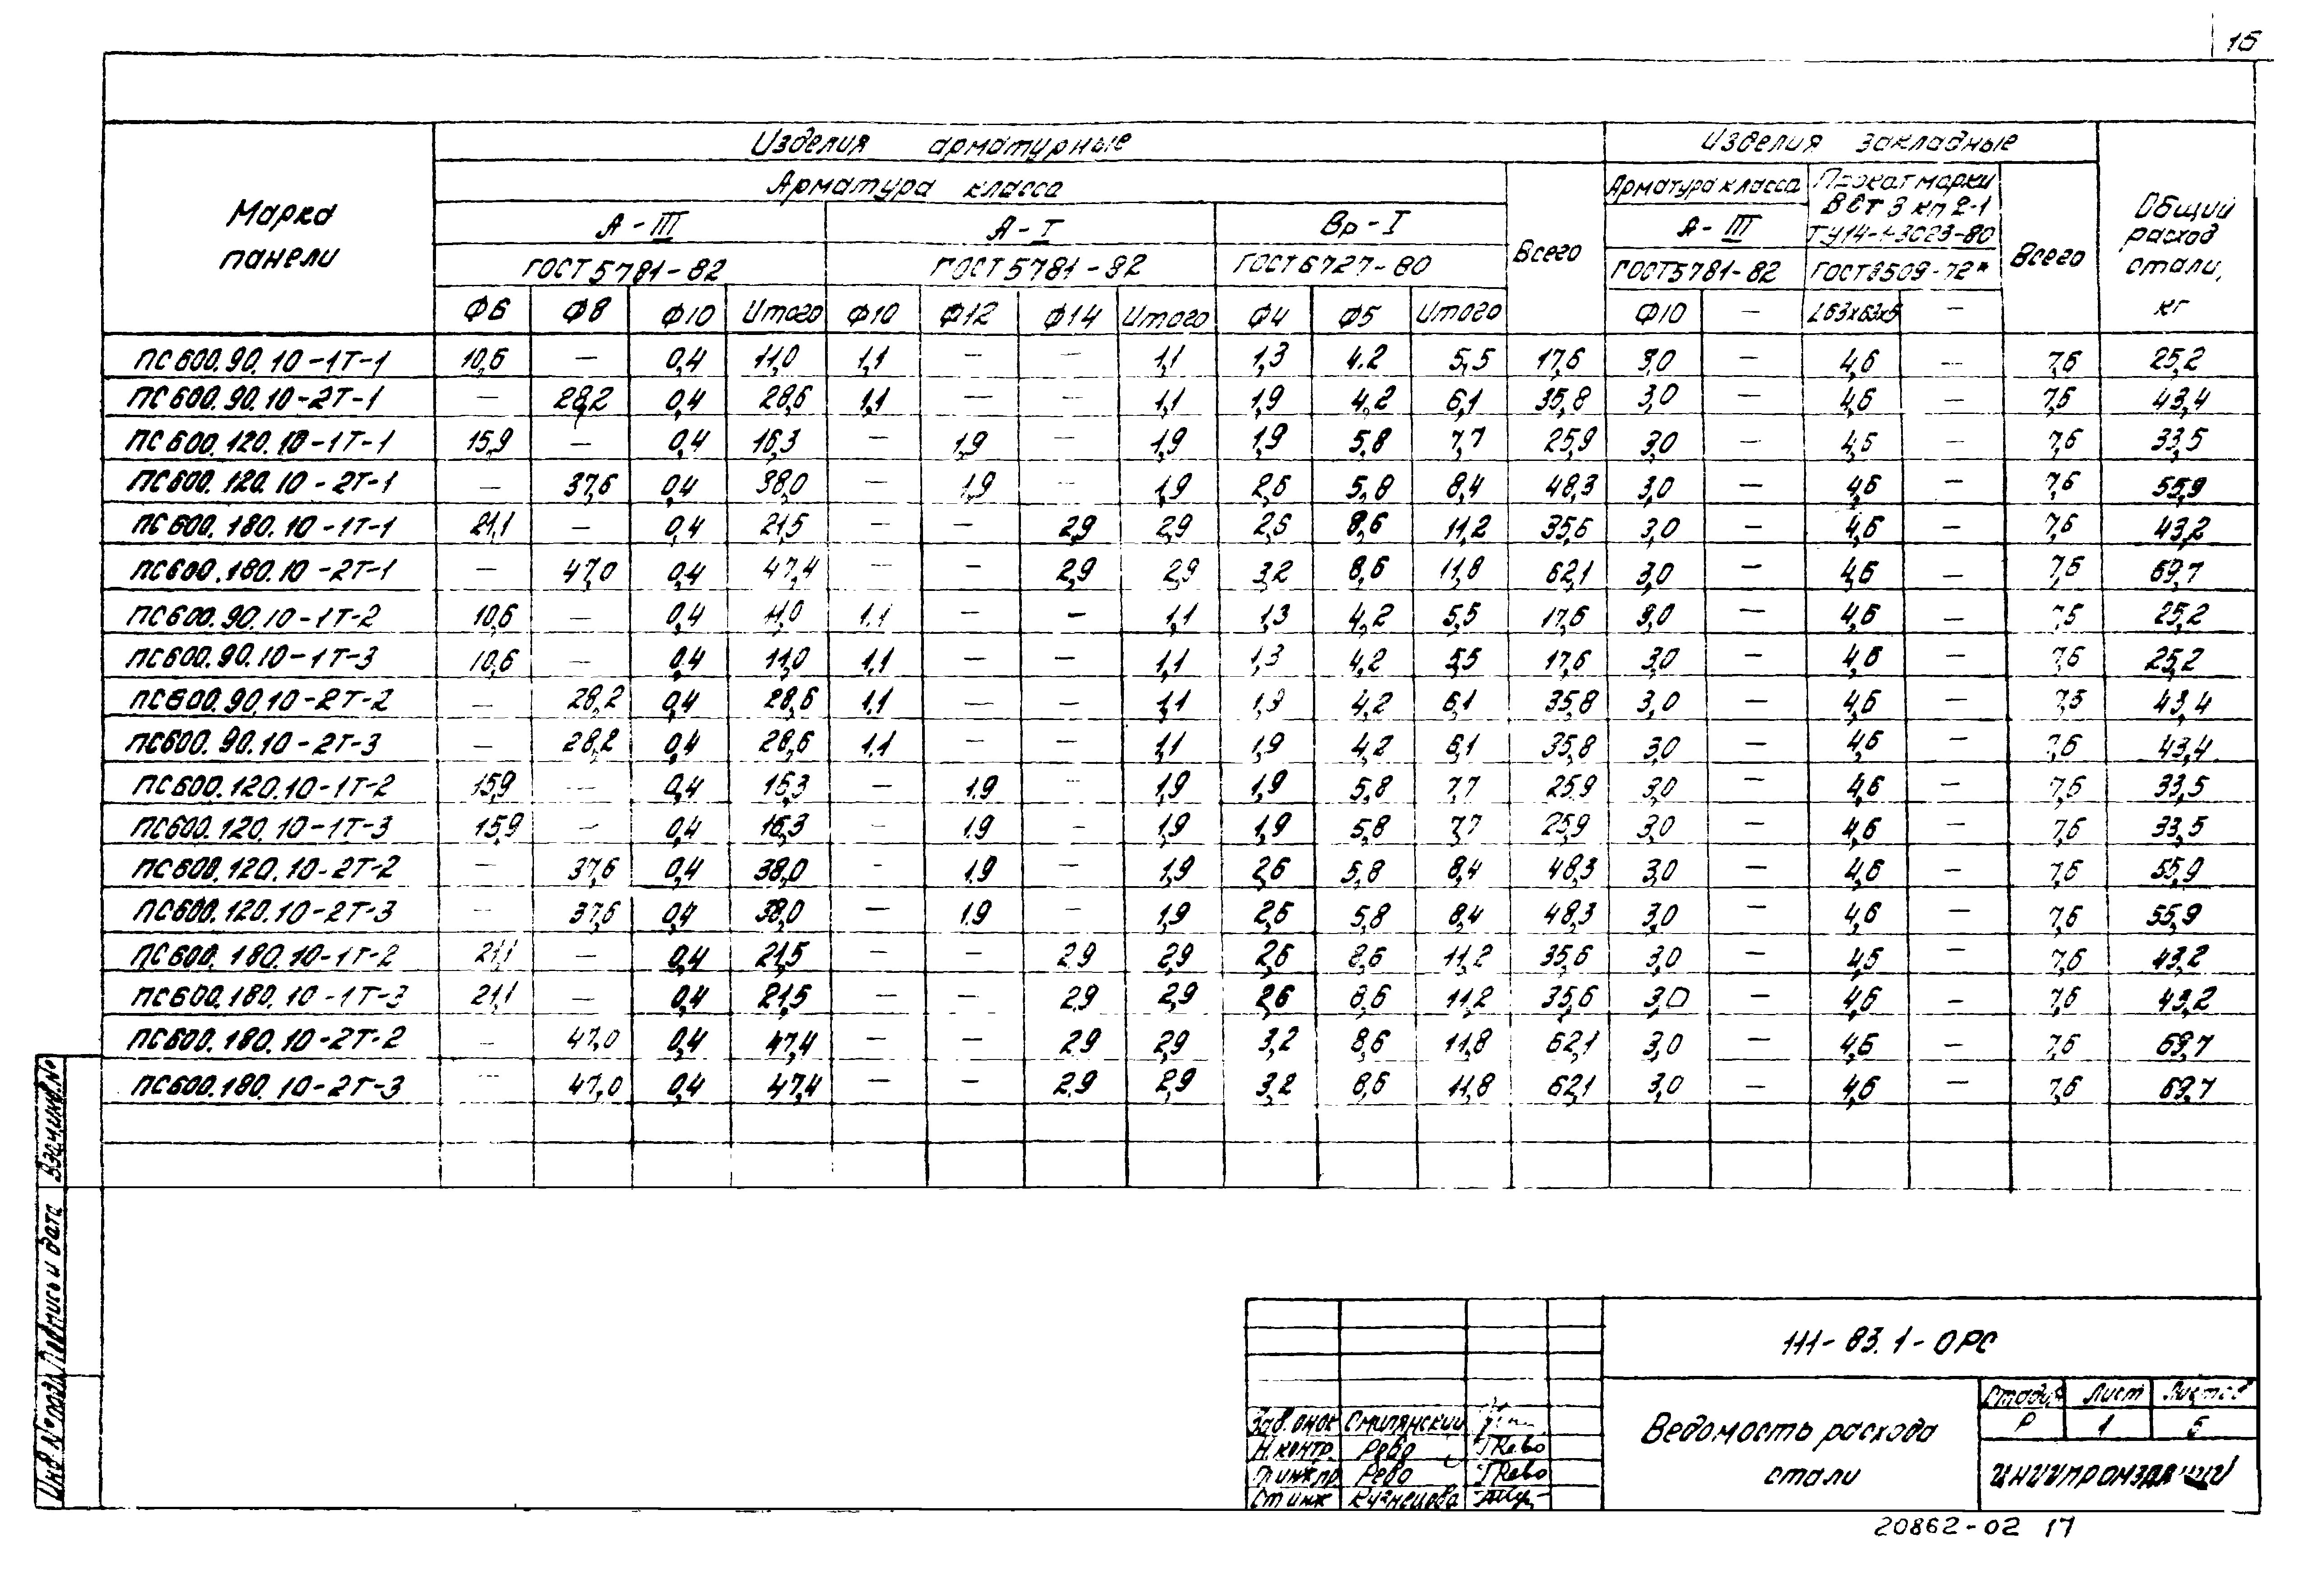 16
Марка панели
Изделия арматурные
Изделия закладные
Общий расход стали, кг
Арматура класса
Всего
Арматура класса
Прокат марки ВСт3кп2-1 ТУ14-1-3023-80
Всего
А-III
А-I
Вр-I
А-III
ГОСТ 5781-82
ГОСТ 5781-82
ГОСТ 6727-80
ГОСТ 5781-82
ГОСТ 8509-72*
Ф6 Ф8 Ф10 Итого Ф10 Ф12 Ф14 Итого Ф4 Ф5 Итого Ф10 — L63х63х5 —
ПС600.90.10-1Т-1 10,6 — 0,4 11,0 1,1 — — 1,1 1,3 4.2 5,5 17,6 3,0 — 4,6 — 7,6 25,2
ПС600.90.10-2Т-1 — 28,2 0,4 28,6 1,1 — — 1,1 1,9 4,2 6,1 35,8 3,0 — 4,6 — 7,6 43,4
ПС600.120.10-1Т-1 15,9 — 0,4 16,3 — 1,9 — 1,9 1,9 5,8 7,7 25,9 3,0 — 4,6 — 7,6 33,5
ПС600.120.10-2Т-1 — 37,6 0,4 38,0 — 1,9 — 1,9 2,6 5,8 8,4 48,3 3,0 — 4,6 — 7,6 55,9
ПС600.180.10-1Т-1 21,1 — 0,4 21,5 — — 2,9 2,9 2,6 8,6 11,2 35,6 3,0 — 4,6 — 7,6 43,2
ПС600.180.10-2Т-1 — 47,0 0,4 47,4 — — 2,9 2,9 3,2 8,6 11,8 62,1 3,0 — 4,6 — 7,6 69,7
ПС600.90.10-1Т-2 10,6 — 0,4 11,0 1,1 — — 1,1 1,3 4,2 5,5 17,6 3,0 — 4,6 — 7,6 25,2
ПС600.90.10-1Т-3 10,6 — 0,4 11,0 1,1 — — 1,1 1,3 4,2 5,5 17,6 3,0 — 4,6 — 7,6 25,2
ПС600.90.10-2Т-2 — 28,2 0,4 28,6 1,1 — — 1,1 1,9 4,2 6,1 35,8 3,0 — 4,6 — 7,6 43,4
ПС600.90.10-2Т-3 — 28,2 0,4 28,6 1,1 — — 1,1 1,9 4,2 6,1 35,8 3,0 — 4,6 — 7,6 43,4
ПС600.120.10-1Т-2 15,9 — 0,4 16,3 — 1,9 — 1,9 1,9 5,8 7,7 25,9 3,0 — 4,6 — 7,6 33,5
ПС600.120.10-1Т-3 15,9 — 0,4 16,3 — 1,9 — 1,9 1,9 5,8 7,7 25,9 3,0 — 4,6 — 7,6 33,5
ПС600.120.10-2Т-2 — 37,6 0,4 38,0 — 1,9 — 1,9 2,6 5,8 8,4 48,3 3,0 — 4,6 — 7,6 55,9
ПС600.120.10-2Т-3 — 37,6 0,4 38,0 — 1,9 — 1,9 2,6 5,8 8,4 48,3 3,0 — 4,6 — 7,6 55,9
ПС600.180.10-1Т-2 21,1 — 0,4 21,5 — — 2,9 2,9 2,6 8,6 11,2 35,6 3,0 — 4,6 — 7,6 43,2
ПС600.180.10-1Т-3 21,1 — 0,4 21,5 — — 2,9 2,9 2,6 8,6 11,2 35,6 3,0 — 4,6 — 7,6 43,2
ПС600.180.10-2Т-2 — 47,0 0,4 47,4 — — 2,9 2,9 3,2 8,6 11,8 62,1 3,0 — 4,6 — 7,6 69,7
ПС600.180.10-2Т-3 — 47,0 0,4 47,4 — — 2,9 2,9 3,2 8,6 11,8 62,1 3,0 — 4,6 — 7,6 69,7
Взам.инв.№
Подпись и дата
Инв.№подл.
111-83.1-ОРС
Ведомость расхода
стали
Стадия Лист Листов
Р 1 5
ЦНИИПРОМЗДАНИЙ
Смилянский
Н.контр. Рево
Гл.инж.пр. Рево
Ст.инж Кузнецова
20862-02 17